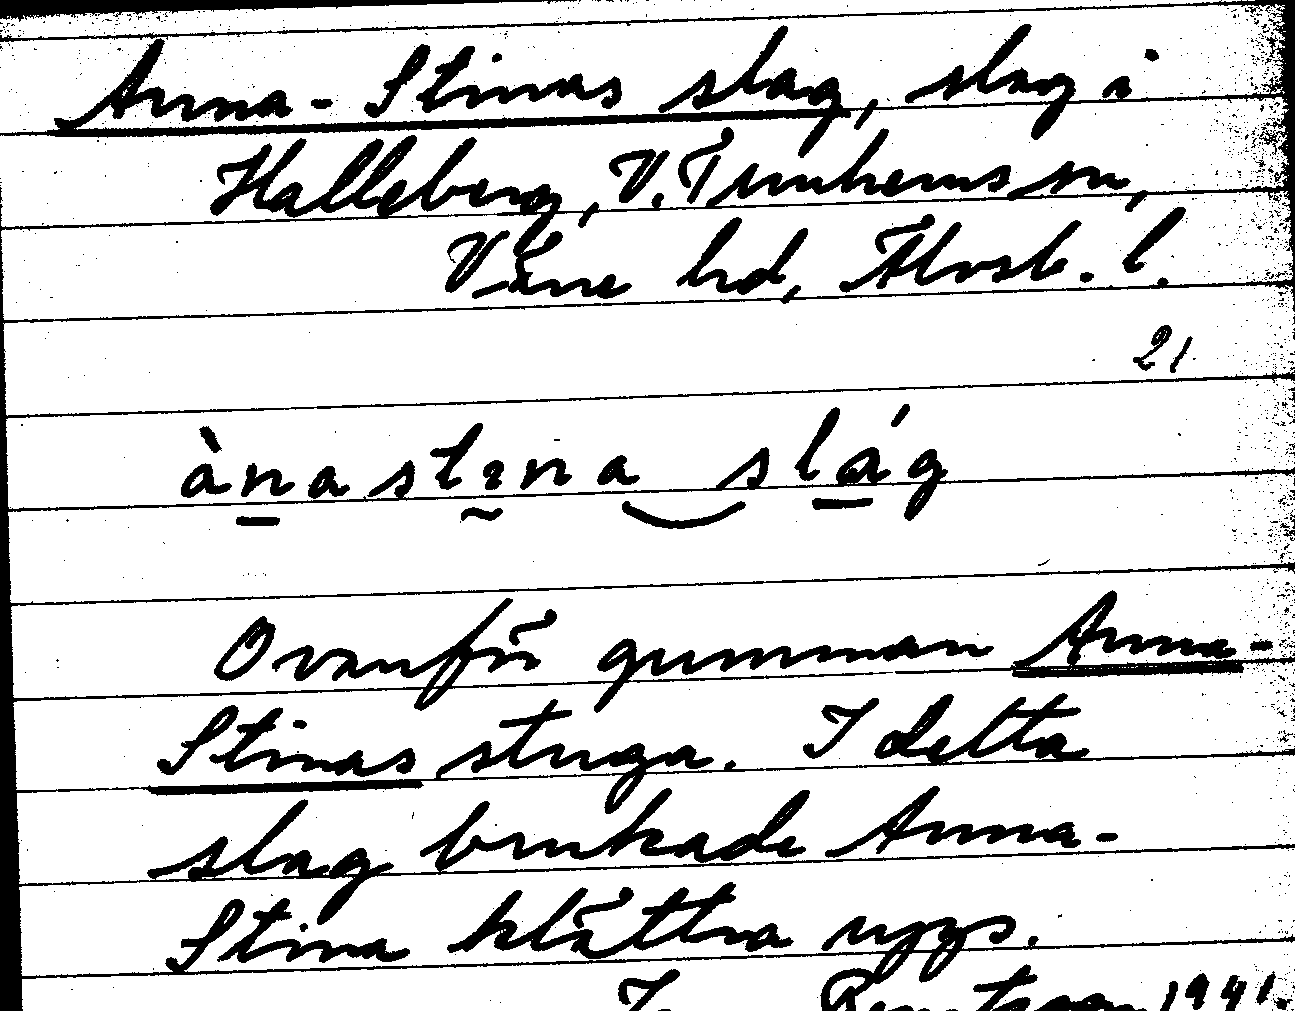 Anna-Stinas slag, slag i
Halleberg, V. Tunhems sn,
Väne hd, Älvsb. l.
21
ànastina slág
Ovanför gumman Anna-
Stinas stuga. I detta
slag brukade Anna-
Stina klättra upp.
1941.